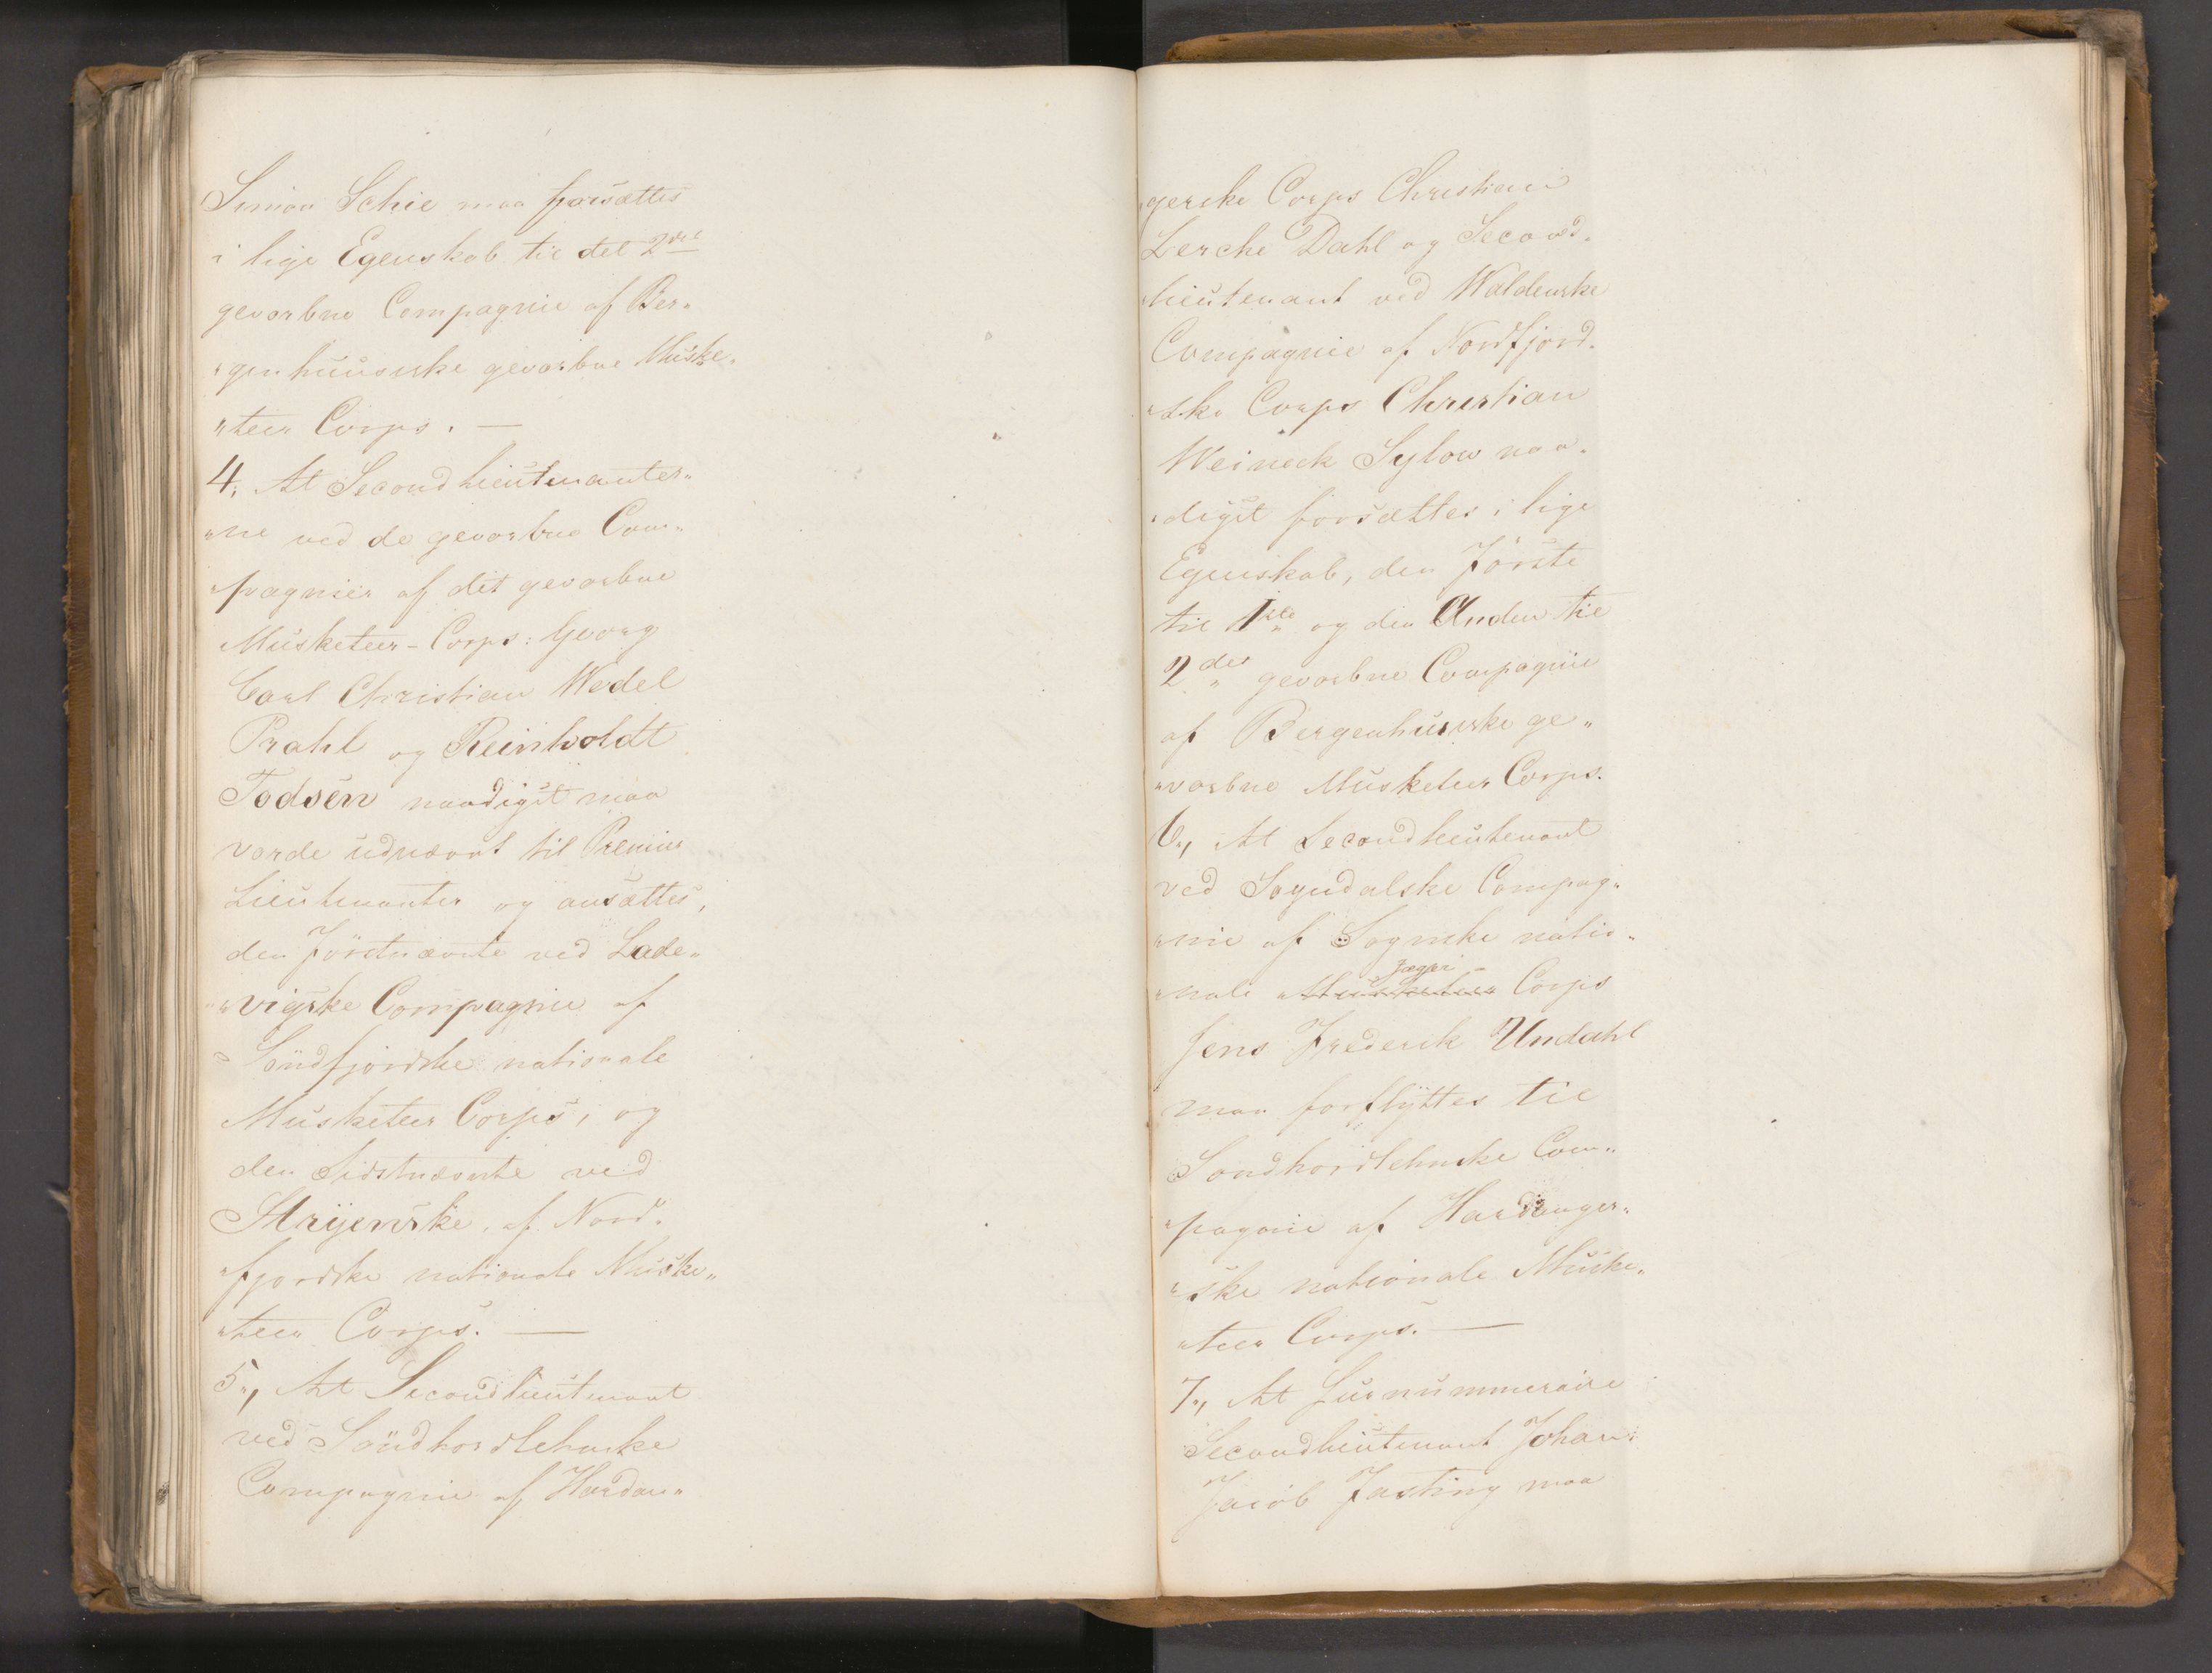 Simon Schie maa forsættes
i lige Egenskab til det 2det
gevorbne Compagnie af Ber„
„genhuusiske gevorbne Muske„
„teer Corps. —
4, At Secondlieutenanter„
„ne ved de gevorbne Com„
„pagnier af dit gevorbne
Musketeer-Corps: Georg
Carl Christian Wedel
Prahl og Reinholdt
Todsen naadigst maa
vorde udnævnt til Premier
Lieutenanter og ansættes,
den Förstnævnte ved Lade„
„vigske Compagnie af
Söndfjordske nationale
Musketeer Corps, og
den Sidstnævnte ved
Stryenske, af Nord„
„fjordske nationale Muske„
„teer Corps. —
5„, At Secondlieutenant
ved Söndhordlehnske
Compagnie af Hardan„
gerske Corps Christian
Lerche Dahl og Second„
„lieutenant ved Waldenske
Compagnie af Nordfjord„
„ske Corps Christian
Weineck Sylow naa„
„digst forsættes i lige
Egenskab, den Förste
til 1ste og den Anden til
2det gevorbne Compagnie
af Bergenhusiske ge„
„vorbne Musketeer Corps.
6„, At Secondlieutenant
ved Sogndalske Compag„
„nie af Sognske natio„
Jæger-
„nale Musketeer Corps
Jens Frederik Undahl
maa forflyttes til
Söndhordlehnske Com„
„pagnie af Hardanger„
„ske nationale Muske„
„teer Corps. —
7„, At Surnummeraire
Secondlieutenant Johan
Jacob Fasting maa